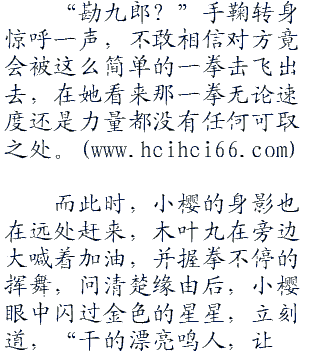 “勘九郎？”手鞠转身
惊呼一声，不敢相信对方竟
会被这么简单的一拳击飞出
去，在她看来那一拳无论速
度还是力量都没有任何可取
之处。(www.hcihci66.com)
而此时，小樱的身影也
在远处赶来，木叶丸在旁边
大喊着加油，并握拳不停的
挥舞，问清楚缘由后，小樱
眼中闪过金色的星星，立刻
道，“干的漂亮鸣人，让